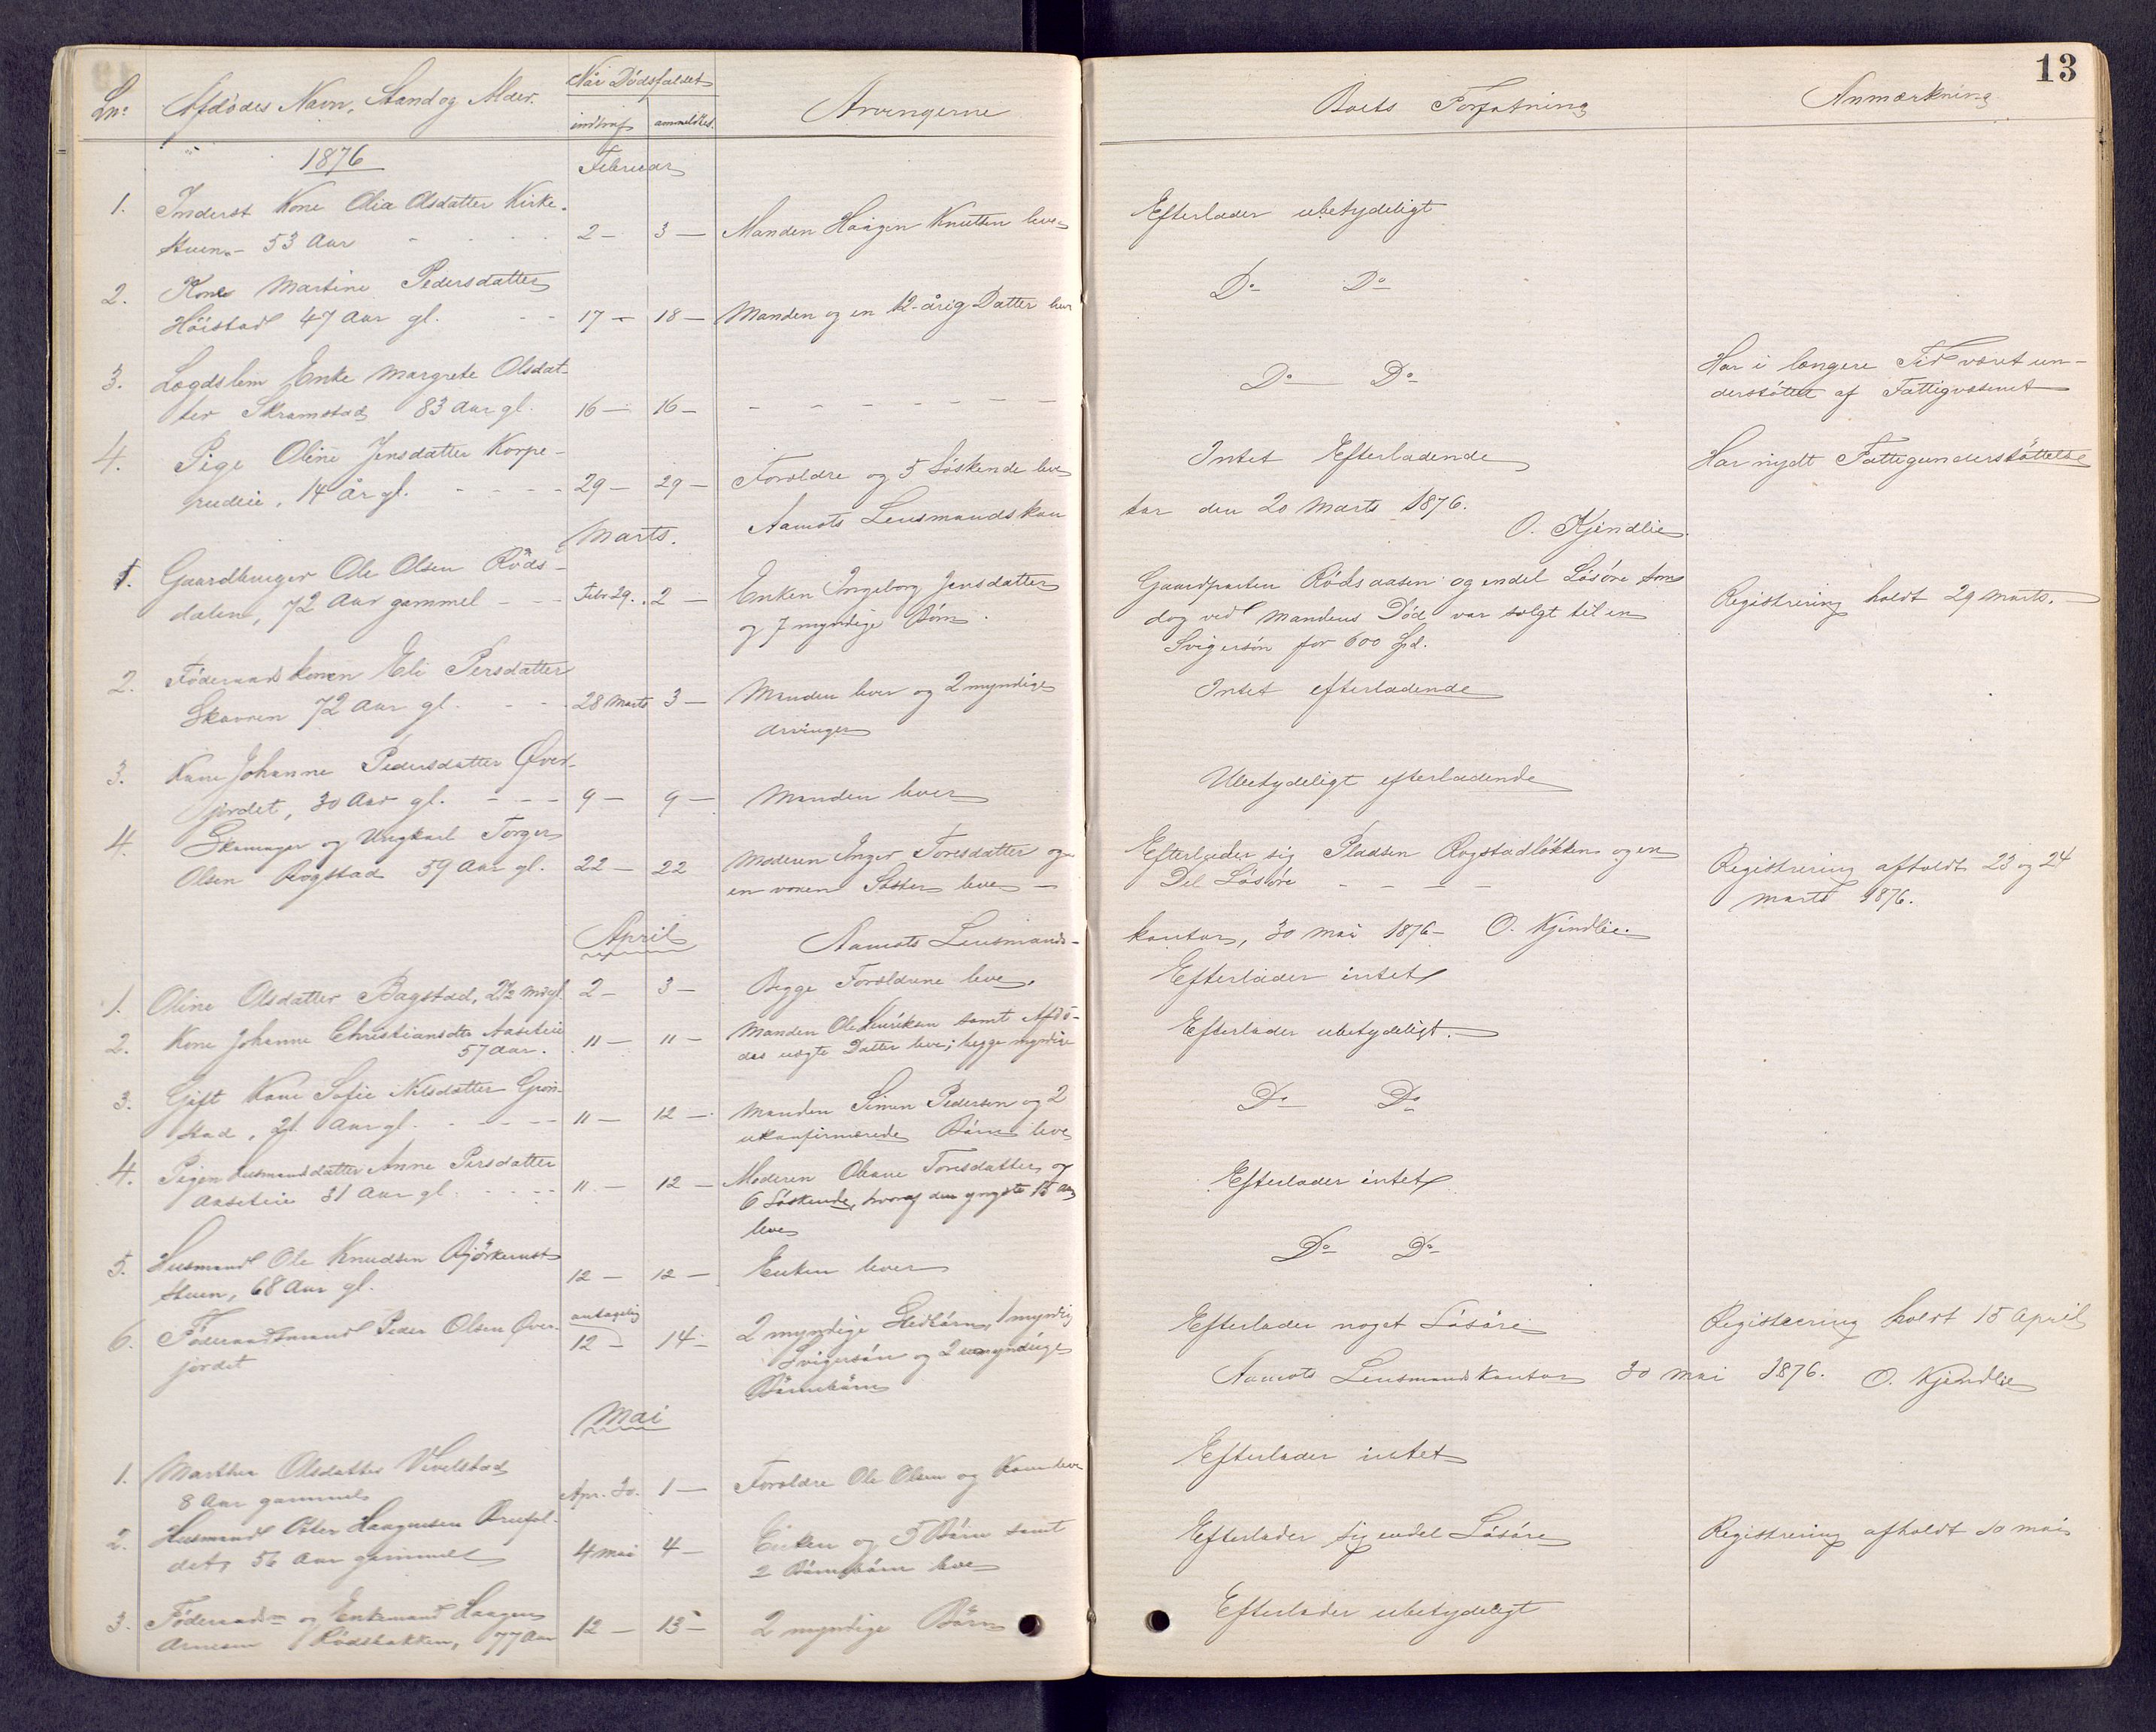 13
Ln: Afdödes Navn, Stand og Alder. Når Dödsfaldet indtraf anmeldtes. Arvingerne Boets Forfatning Anmærkning
1876 Februar
1. Inderst Kone Olia Olsdatter Kirke- Efterlader ubetydeligt
stuen - 53 Aar 2 - 3 - Manden Haagen Knutsen lever
2. Kone Martine Pedersdatter Do Do
Höistad 47 Aar gl. 17 - 18 - Manden og en 12-årig Datter lever
3. Lægdslem Enke Margrete Olsdat- Do Do Har i længere Tid været un-
ter Skramstad 83 Aar gl. 16 - 16 - derstöttet af Fattigvæsenet
4. Pige Oline Jensdatter Korpe- Intet Efterladende Har nydt Fattigunderstöttelse
rudeie, 14 år gl. 29 - 29 - Forældre og 5 Söskende leve
Marts. Aamots Lensmandskon
tor den 20 Marts 1876.
O. Kjendlie
1. Gaardbruger Ole Olsen Röds- Enken Ingeborg Jensdatter Gaardparten Rödsaasen og endel Lösöre som
dalen, 72 Aar gammel Febr 29. 2 - og 7 myndige Börn. dog ved Mandens Död var solgt til en Registrering holdt 29 Marts.
Svigersön for 600 Spd.
2. Föderaadskonen Eli Persdatter Intet efterladende
Skavren 72 Aar gl. 28 Marts 3 - Manden lever og 2 myndige
Arvinger
3. Kone Johanne Pedersdatter Över- Ubetydeligt efterladende
jordet, 30 Aar gl. 9 - 9 - Manden lever
4. og Ungkarl Torger Moderen Inger Toresdatter og Efterlader sig Pladsen Rogstadlökken og en Registrering afholdt 23 og 24
Olsen Rogstad 39 Aar gl. 22 - 22 en voxen Söster leve - Del Lösöre Marts 1876.
April Aamots Lensmands-
kontor, 30 Mai 1876 - O. Kjendlie.
1. Oline Olsdatter Bagstad, 2½ 2 - 3 - Begge Forældrene leve. Efterlader intet
2. Kone Johanne Christiansdtr Aaseteie 11 - 11 - Manden Ole Henriksen samt Afdö- Efterlader ubetydeligt.
57 Aar. des uægte Datter lever; begge myndige
3. Gift Kone Sofie Nilsdatter Grön- Manden Simen Pedersen og 2 Do Do
stad, 21 Aar gl. 11 - 12 - ukonfirmerede Börn leve
4. Pigen Husmandsdatter Anne Persdatter Moderen Oleane Toresdatter og Efterlader intet
Aaseteie 31 Aar gl. 11 - 12 - 6 Söskende, hvoraf den yngste 15 Aar
leve
5. Husmand Ole Knudsen Do Do
stuen, 68 Aar gl. 12 - 12 - Enken lever
6. Föderaadsmand Peder Olsen Över- antagelig 2 myndige Stedbörn, 1 myndig Efterlader noget Lösöre Registrering holdt 15 April
jordet 12 - 14 - Svigersön og 2 umyndige
Börnebörn
Aamots Lensmandskontor 30 Mai 1876. O. Kjendlie
Mai
1. Marthea Olsdatter Vivelstad Efterlader intet
8 Aar gammel Apr. 30. 1 - Forældre Ole Olsen og Kone leve
2. Husmand Haagensen Enken og 5 Börn samt Efterlader sig endel Lösöre Registrering afholdt 10 Mai
det, 56 Aar gammel 4 Mai 4 - 2 Börnebörn leve
3. Föderaadsm. og Enkemand Haagen 2 myndige Börn Efterlader ubetydeligt
Arnesen Rödsbakken, 77 Aar 12 - 13 -